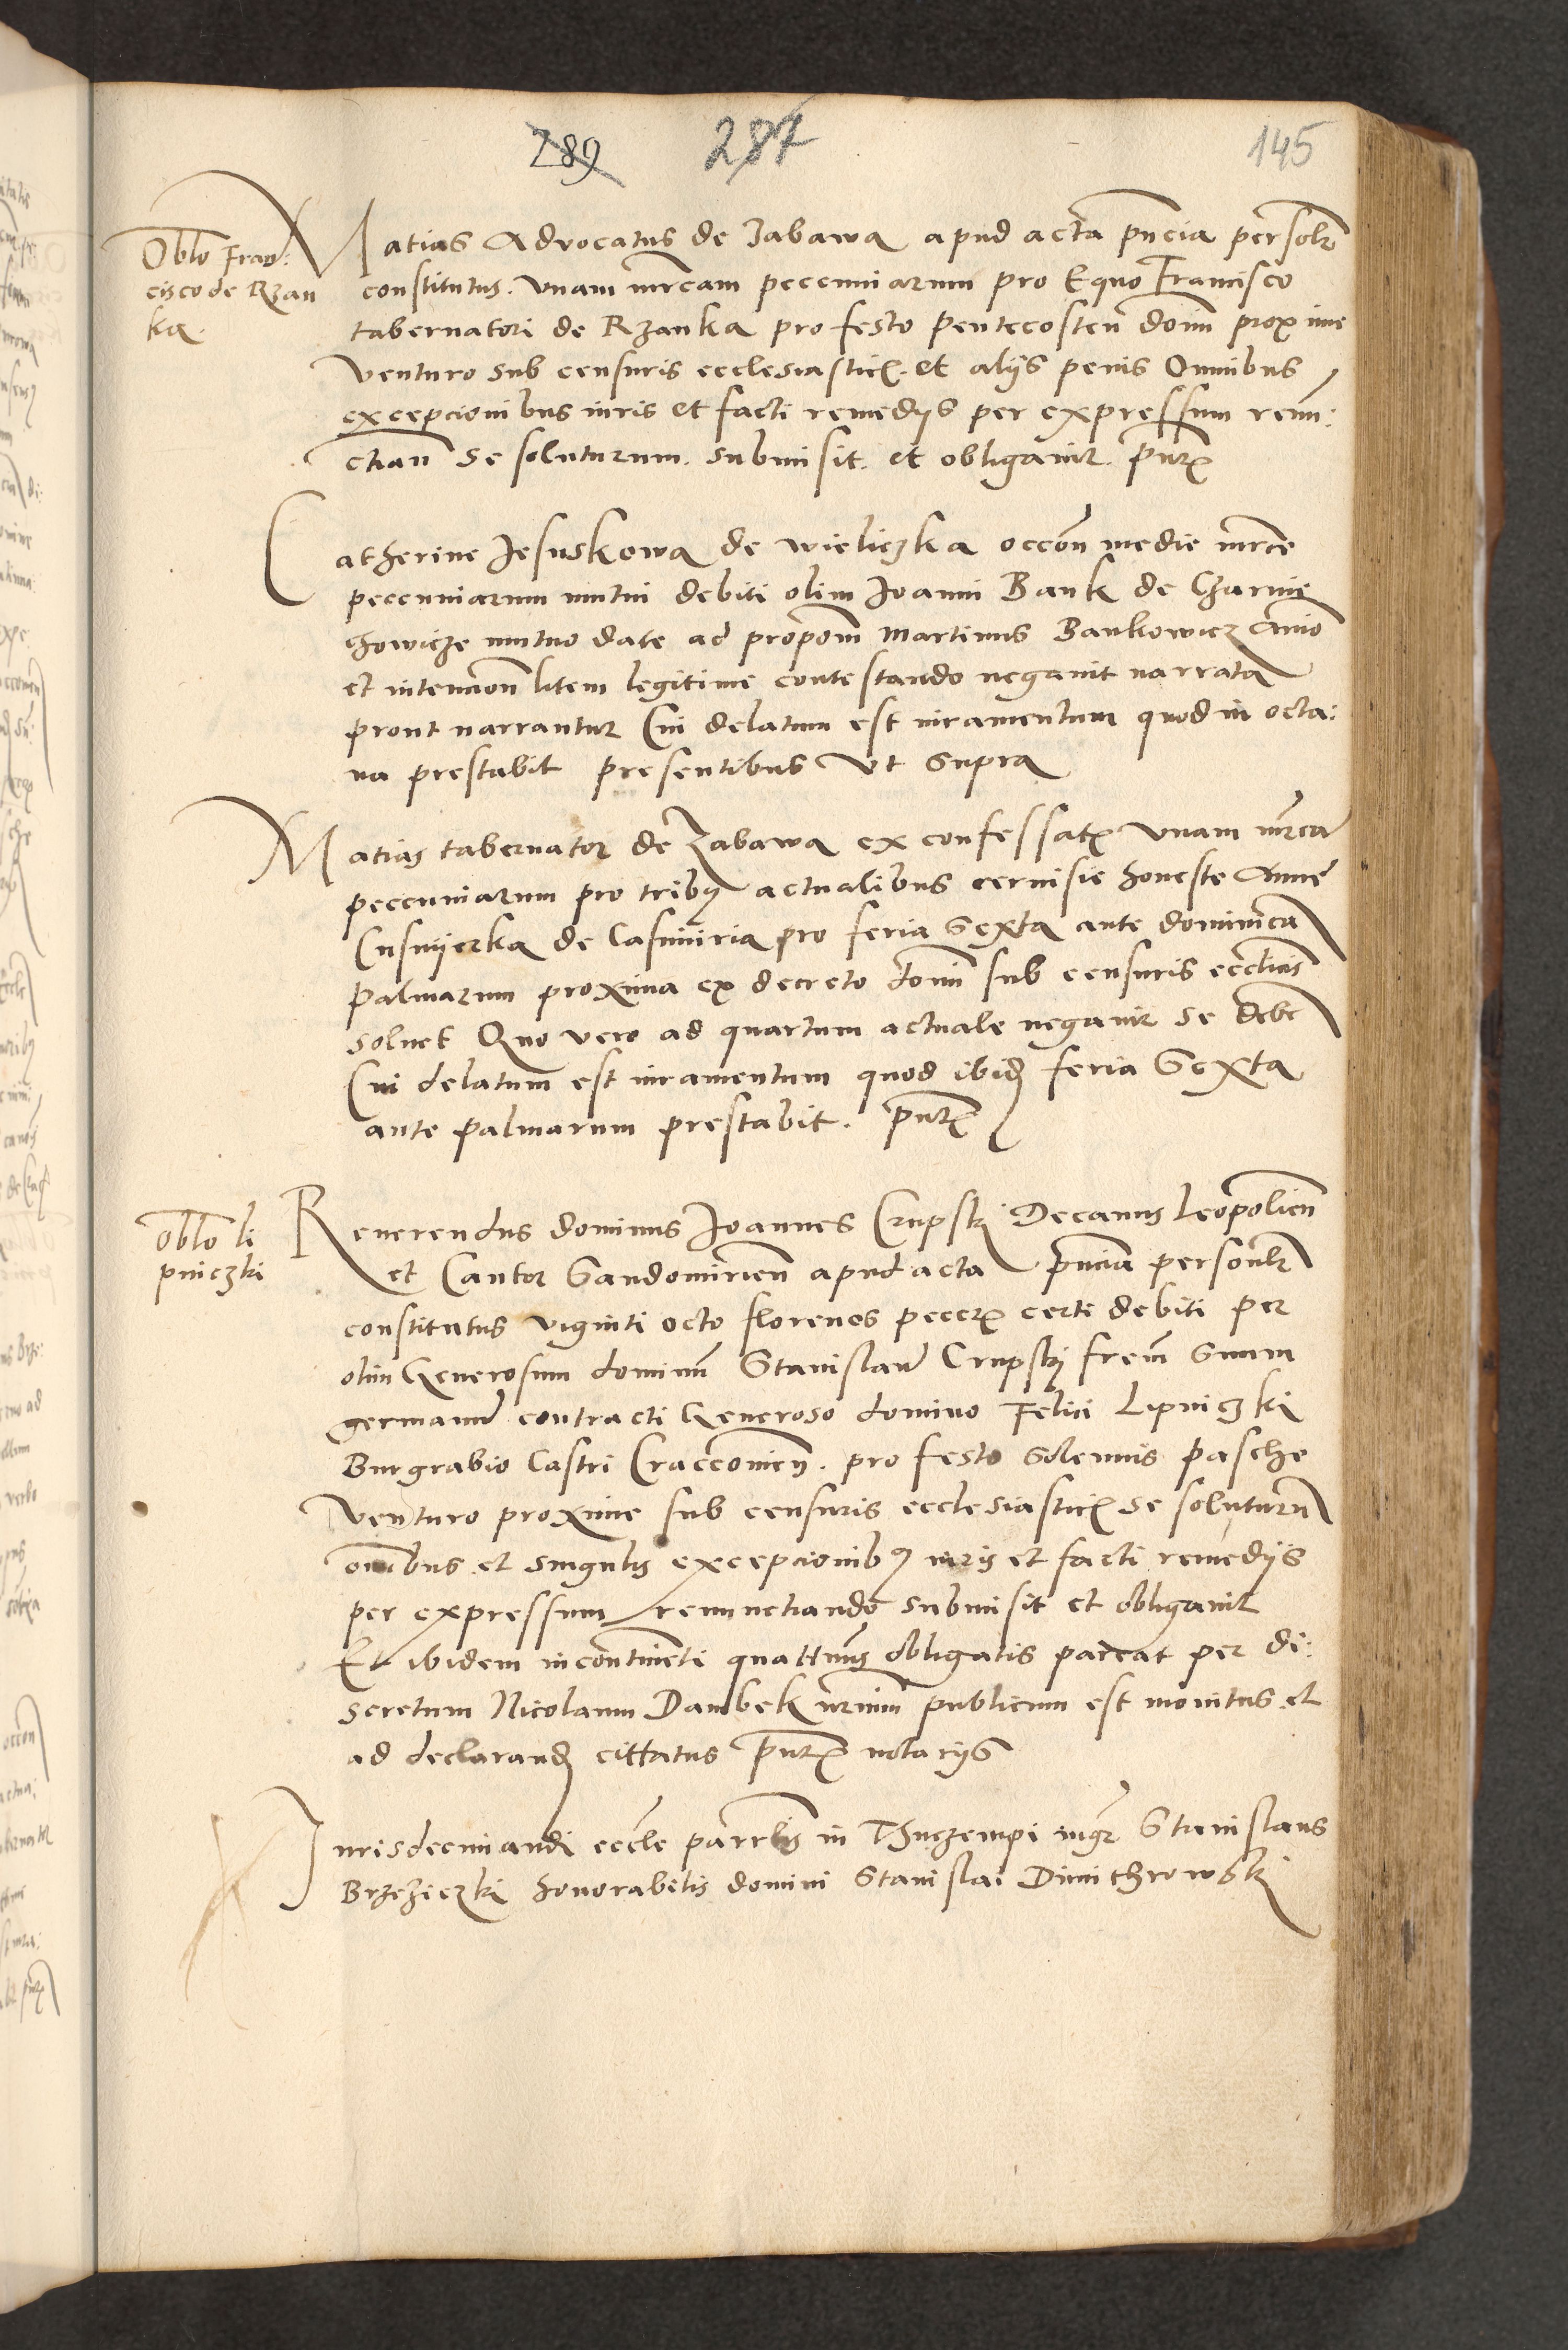 289 287 145
Oblo Fran:
cisco de Rzan
ka.
Matias Advocatus de Zabawa apud acta pncia personlr
constitutus. Unam mrcam peccuniarum pro Equo Francisco
tabernatori de Rzanka pro festo pentecosten domi proxime
venturo sub censuris ecclesiasticis et alijs penis Omnibus
excepcionibus iuris et facti remedijs per expressum renun:
ctian se soluturum. submisit. et obligavit. pntibus
Catherine Jesuskowa de Wieliczka occon medie mrce
peccuniarum mutui debiti olim Joanni Bank de Charnie
chowicze mutuo date ad propom Martinus Bankowicz animo
et intencion litem legitime contestando negavit narrata
prout narrantur Cui delatum est iuramentum quod in octa:
va prestabit presentibus Vt supra
Matias tabernator de Zabawa ex confessatis Vnam mrca
peccuniarum pro tribus actualibus cervisie honeste Anne
Cusnijerka de Casimiria pro feria Sexta ante dominica
palmarum proxima ex decreto domi sub censuris ecclicis
solvet Quo vero ad quartum actuale negavit se debe
Cui delatum est iuramentum quod ibid feria Sexta
ante palmarum prestabit. pntibus
Oblo li
pniczki
Reverendus dominus Joannes Crupski Decanus Leopolien
et Cantor Sandomirien apud acta pncia personlr
constitutus viginti octo florenos peccar certi debiti per
olim Generosum dominum Stanislaum Crupski frem suum
germanum contracti Generoso domino Felici Lipniczki
Burgrabio Castri Craccovien. pro festo Solennis pasche
venturo proxime sub censuris ecclesiasticis se soluturum
omibus et singulis excepcionibus iuris et facti remedijs
per expressum renunctiando submisit et obligavit
Et ibidem incontinenti quattenus obligatis pareat per di:
scretum Nicolaum Dambek nrium publicum est monitus et
ad declarand cittatus pntibus notarijs
Jurisdecimandi eccle parrlis in Thuczempi mgr Stanislaus
Brzeziczki honorabilis domini Stanislai Dimithrowski